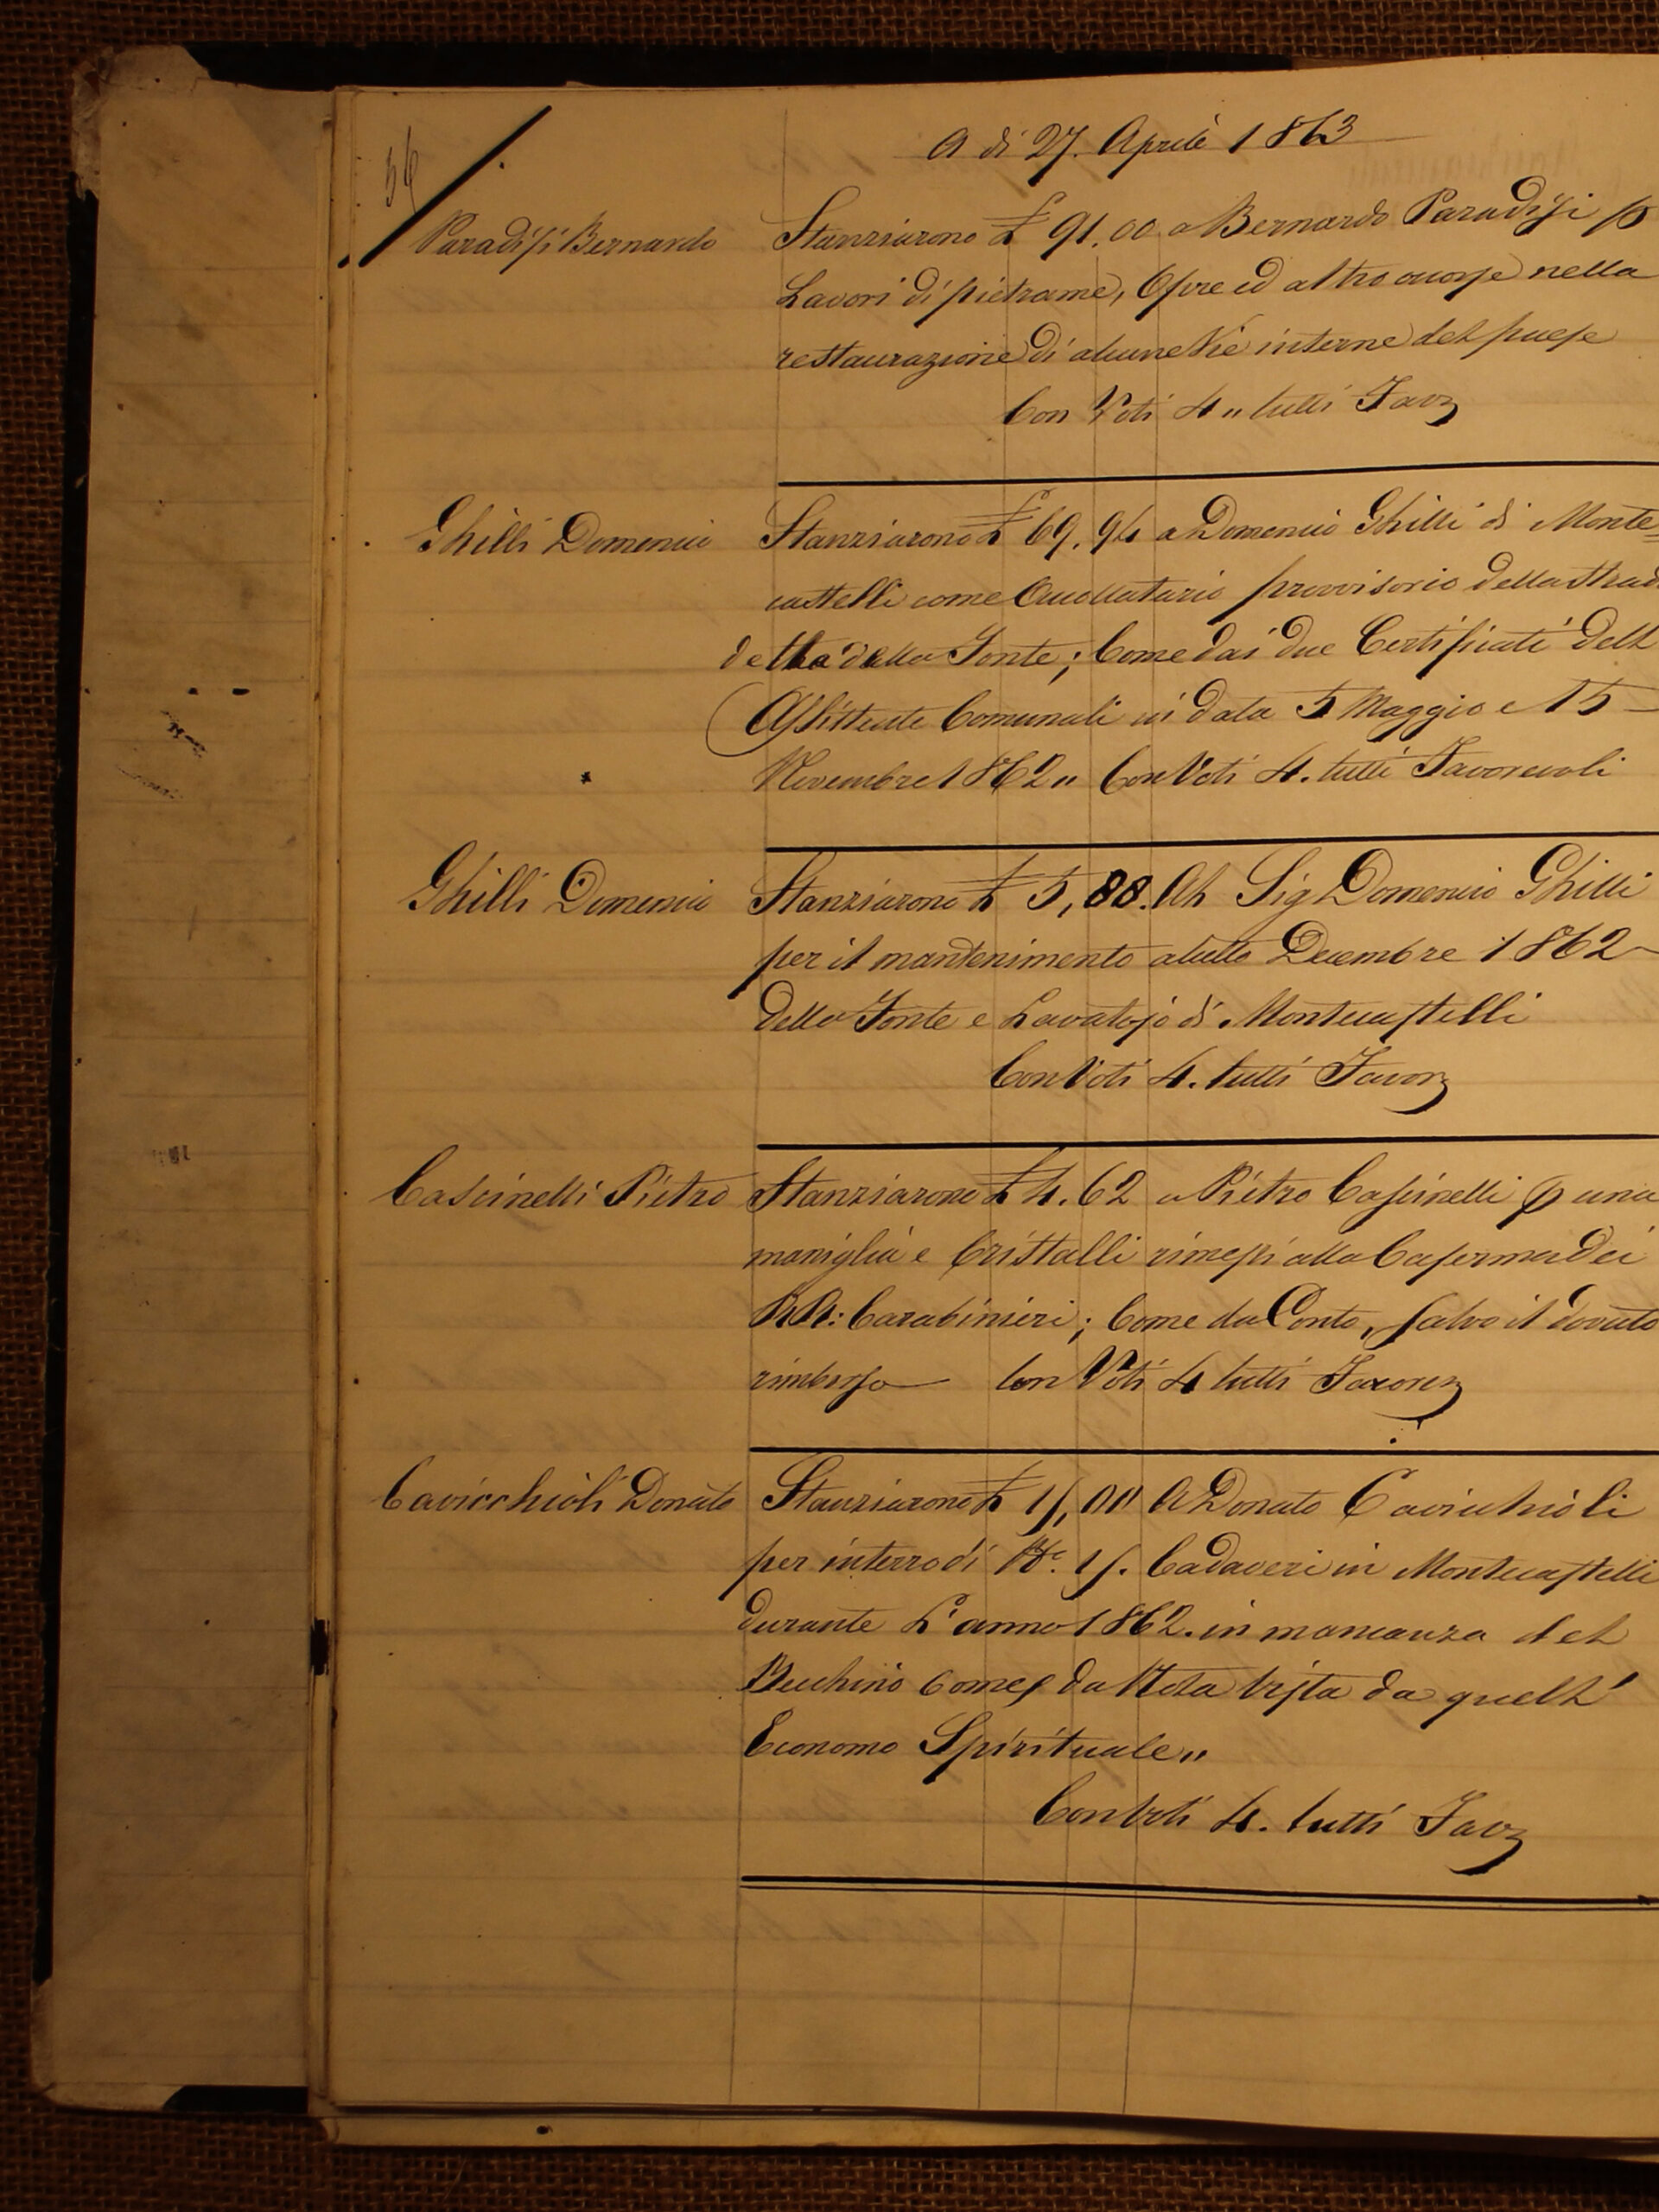 56
A dì 27. Aprile 1863
Paradisi Bernardo
Stanziarono £ 91.00 a Bernardo Paradisi p
Lavori di pietrame, Opre ed altro occorse nella
restaurazione di alcune Vie interne del paese
Con Voti 4 „ tutti Favz
Ghilli Domenico
Stanziarono £ 69.94 a Domenico Ghilli di Monte=
castelli come Accollatario provvisorio della Strad
detta della Fonte; Come dai due Certificati dell
Assistente Comunale in data 5 Maggio e 15
Novembre 1862 „ Con Voti 4. tutti Favorevoli
Ghilli Domenico
Stanziarono £ 5,88. Al Sig Domenico Ghilli
per il mantenimento a tutto Decembre 1862
della Fonte e Lavatojo di Montecastelli
Con Voti 4. tutti Favorz
Cascinelli Pietro
Stanziarono £ 4.62 a Pietro Cascinelli p una
maniglia e Cristalli rimessi alla Caserma dei
RR: Carabinieri; Come da Conto, salvo il dovuto
rimborso Con Voti 4 tutti Favorez
Cavicchioli Donato
Stanziarono £ A Donato Cavicchioli
per interro di N.º Cadaveri in Montecastelli
durante L'anno 1862. in mancanza del
Becchino Come da Nota vista da quell'
Economo Spirituale „
Con Voti 4. tutti Favz